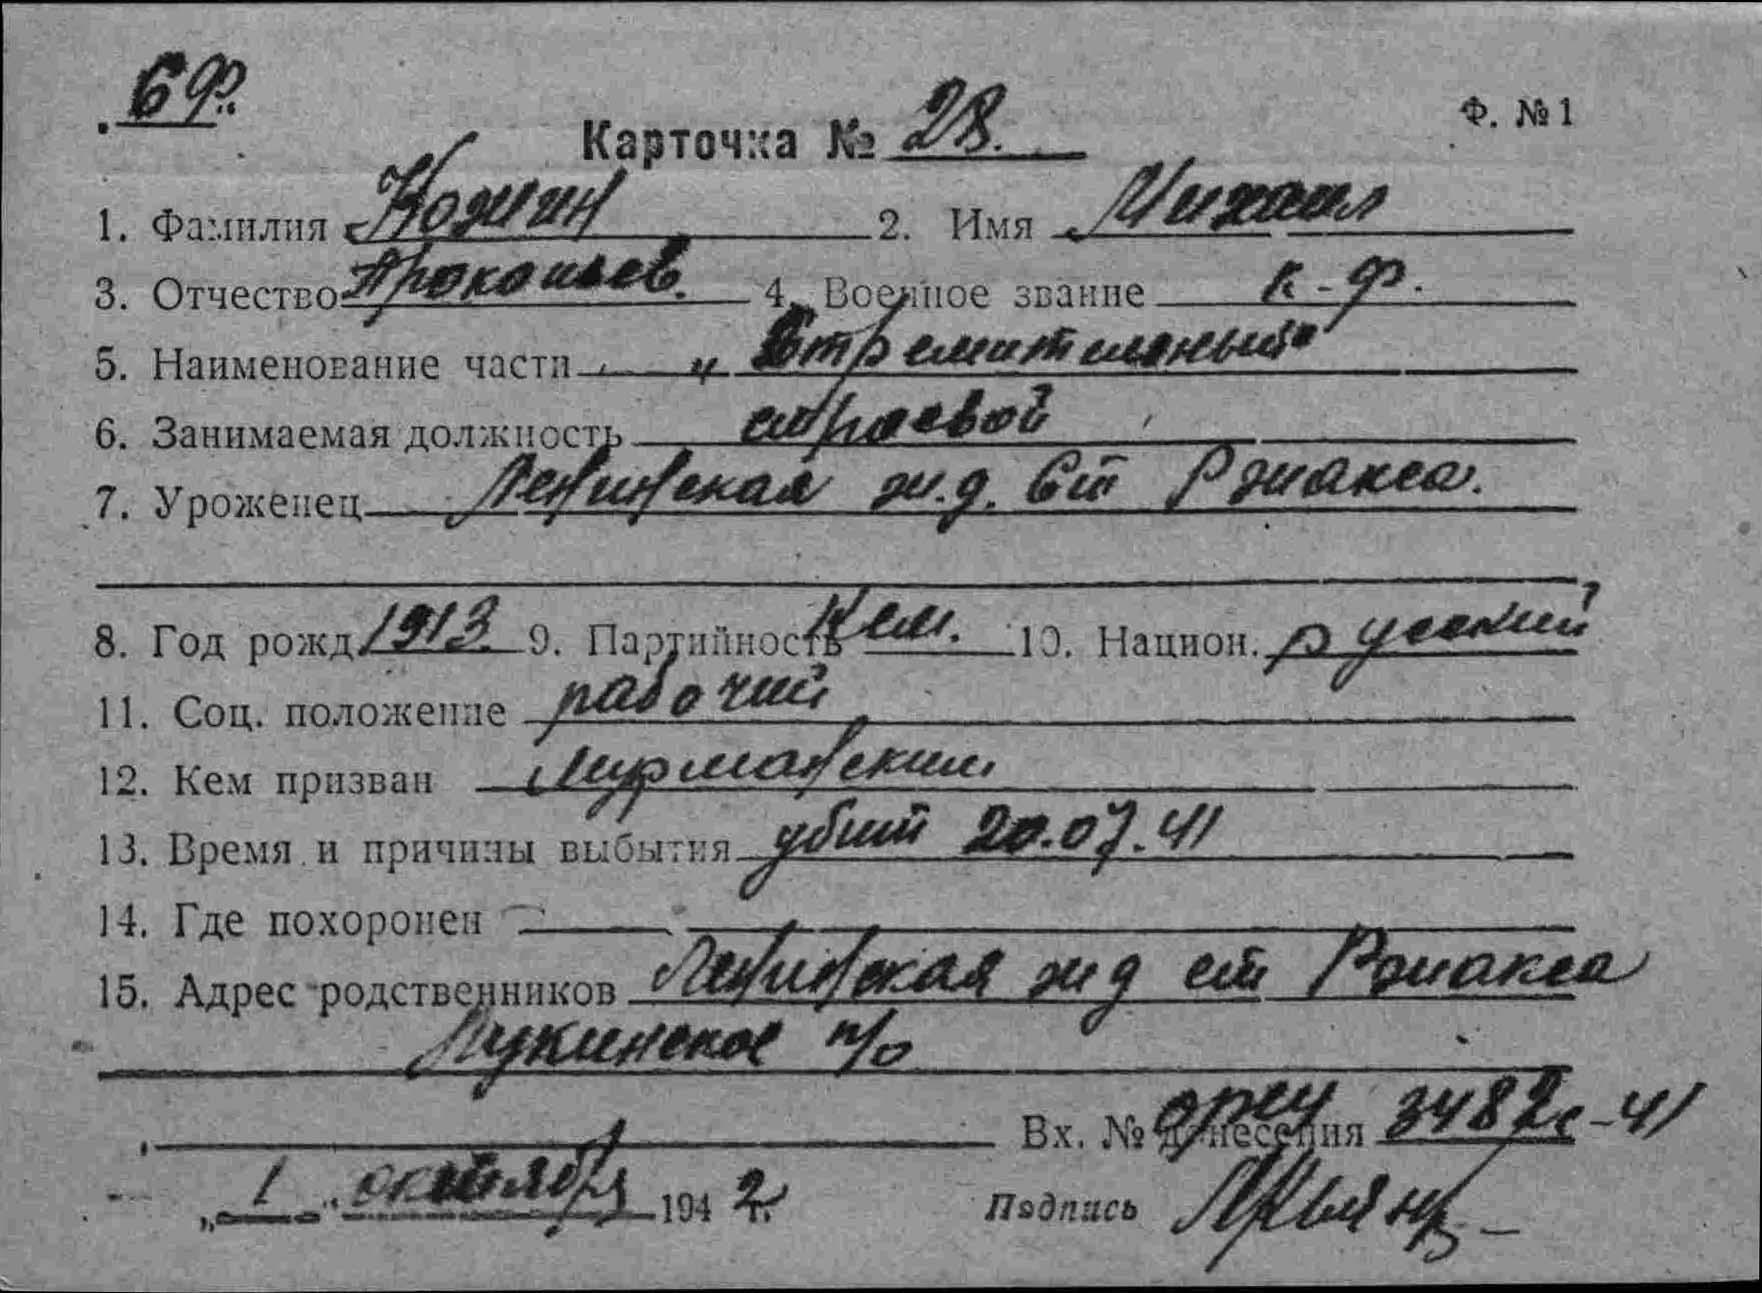 69
Карточка № 28. Ф. № 1
1. Фамилия Кожин 2. Имя Михаил
3. Отчество Прокопьев. 4. Военное звание к-ф.
5. Наименование части „Стремительный"
6. Занимаемая должность строевой
7. Уроженец Ленинская ж.д. Ст Ржакса.
8. Год рожд 1913. 9. Партийность Кем. 10. Национ. русский
11. Соц. положение рабочий
12. Кем призван Мурманским
13. Время и причины выбытия убит 20.07.41
14. Где похоронен —
15. Адрес родственников Ленинская жд ст Ржакса
Лукинское п/о
Вх. № донесения 3482с-41
„1" октября 1942 г.
Подпись